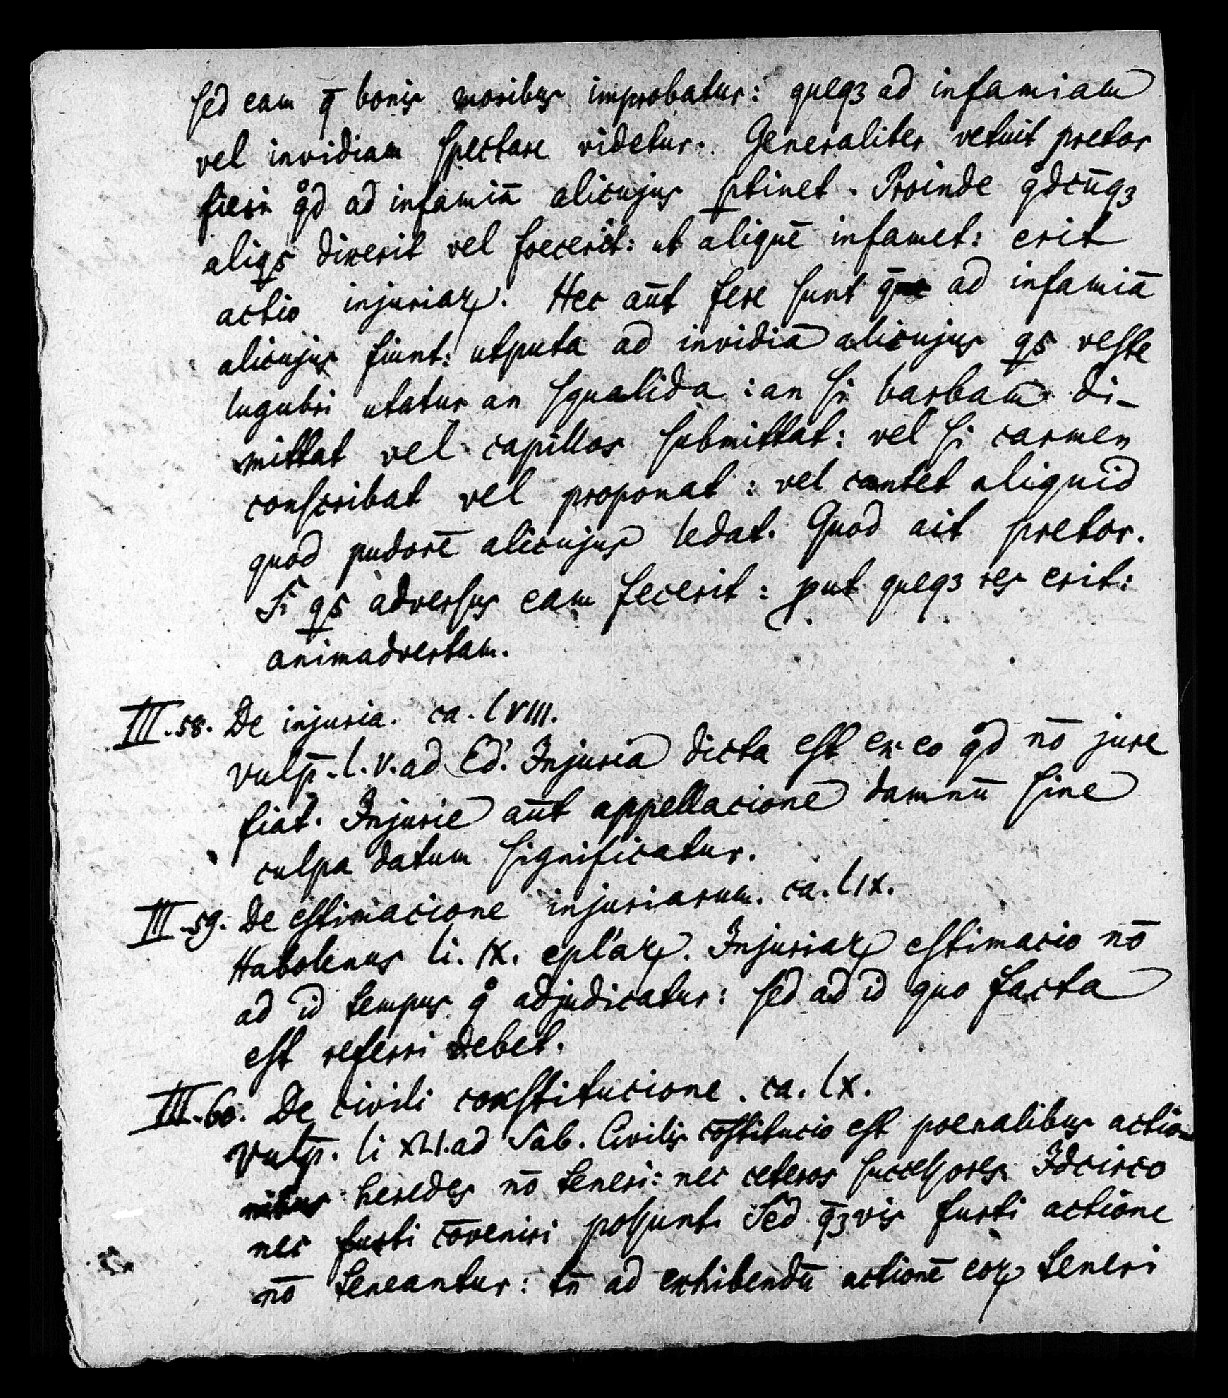 sed eam q̄ bonis moribus improbatur: queqꝫ ad infamiam
vel invidiam spectare videtur. Generaliter vetuit pretor
fieri qͦd ad infamiā alicujus ꝑtinet. Proinde qͦdcūqꝫ
aliqs dixerit vel foecerit: ut aliquē infamet: erit
actio injuriaꝝ. Hec aūt fere sunt q̄ ad infamiā
alicujus fiunt: utputa ad invidiā alicujus qs veste
lugubri utatur an squalida: an si barbam di-
mittat vel capillos submittat: vel si carmen
conscribat vel proponat: vel cantet aliquid
quod pudorē alicujus ledat. Quod ait pretor.
Si qs adversus eam fecerit: ꝓut queqꝫ res erit:
animadvertam.
III.58. De injuria. ca. lVIII.
Vulp̄. l. V. ad Ed'. Injuria dicta est ex eo qͦd nō jure
fiat. Injurie aūt appellacione damnū sine
culpa datum significatur.
III.59. De estimacione injuriarum. ca. lIX.
Habolenus li. IX. epl'aꝝ. Injuriaꝝ estimacio nō
ad id tempus qͦ adjudicatur: sed ad id quo facta
est referri debet.
III.60. De civili constitucione. ca. lX.
Vulp̄. li XLI. ad Sab. Civilis cōstitucio est poenalibus actio-
nibus heredes nō teneri: nec ceteros successores. Idcirco
nec furti cōveniri possunt. Sed qꝫvis furti actione
nō teneantur: tn̄ ad exhibendū actionē eoꝝ teneri